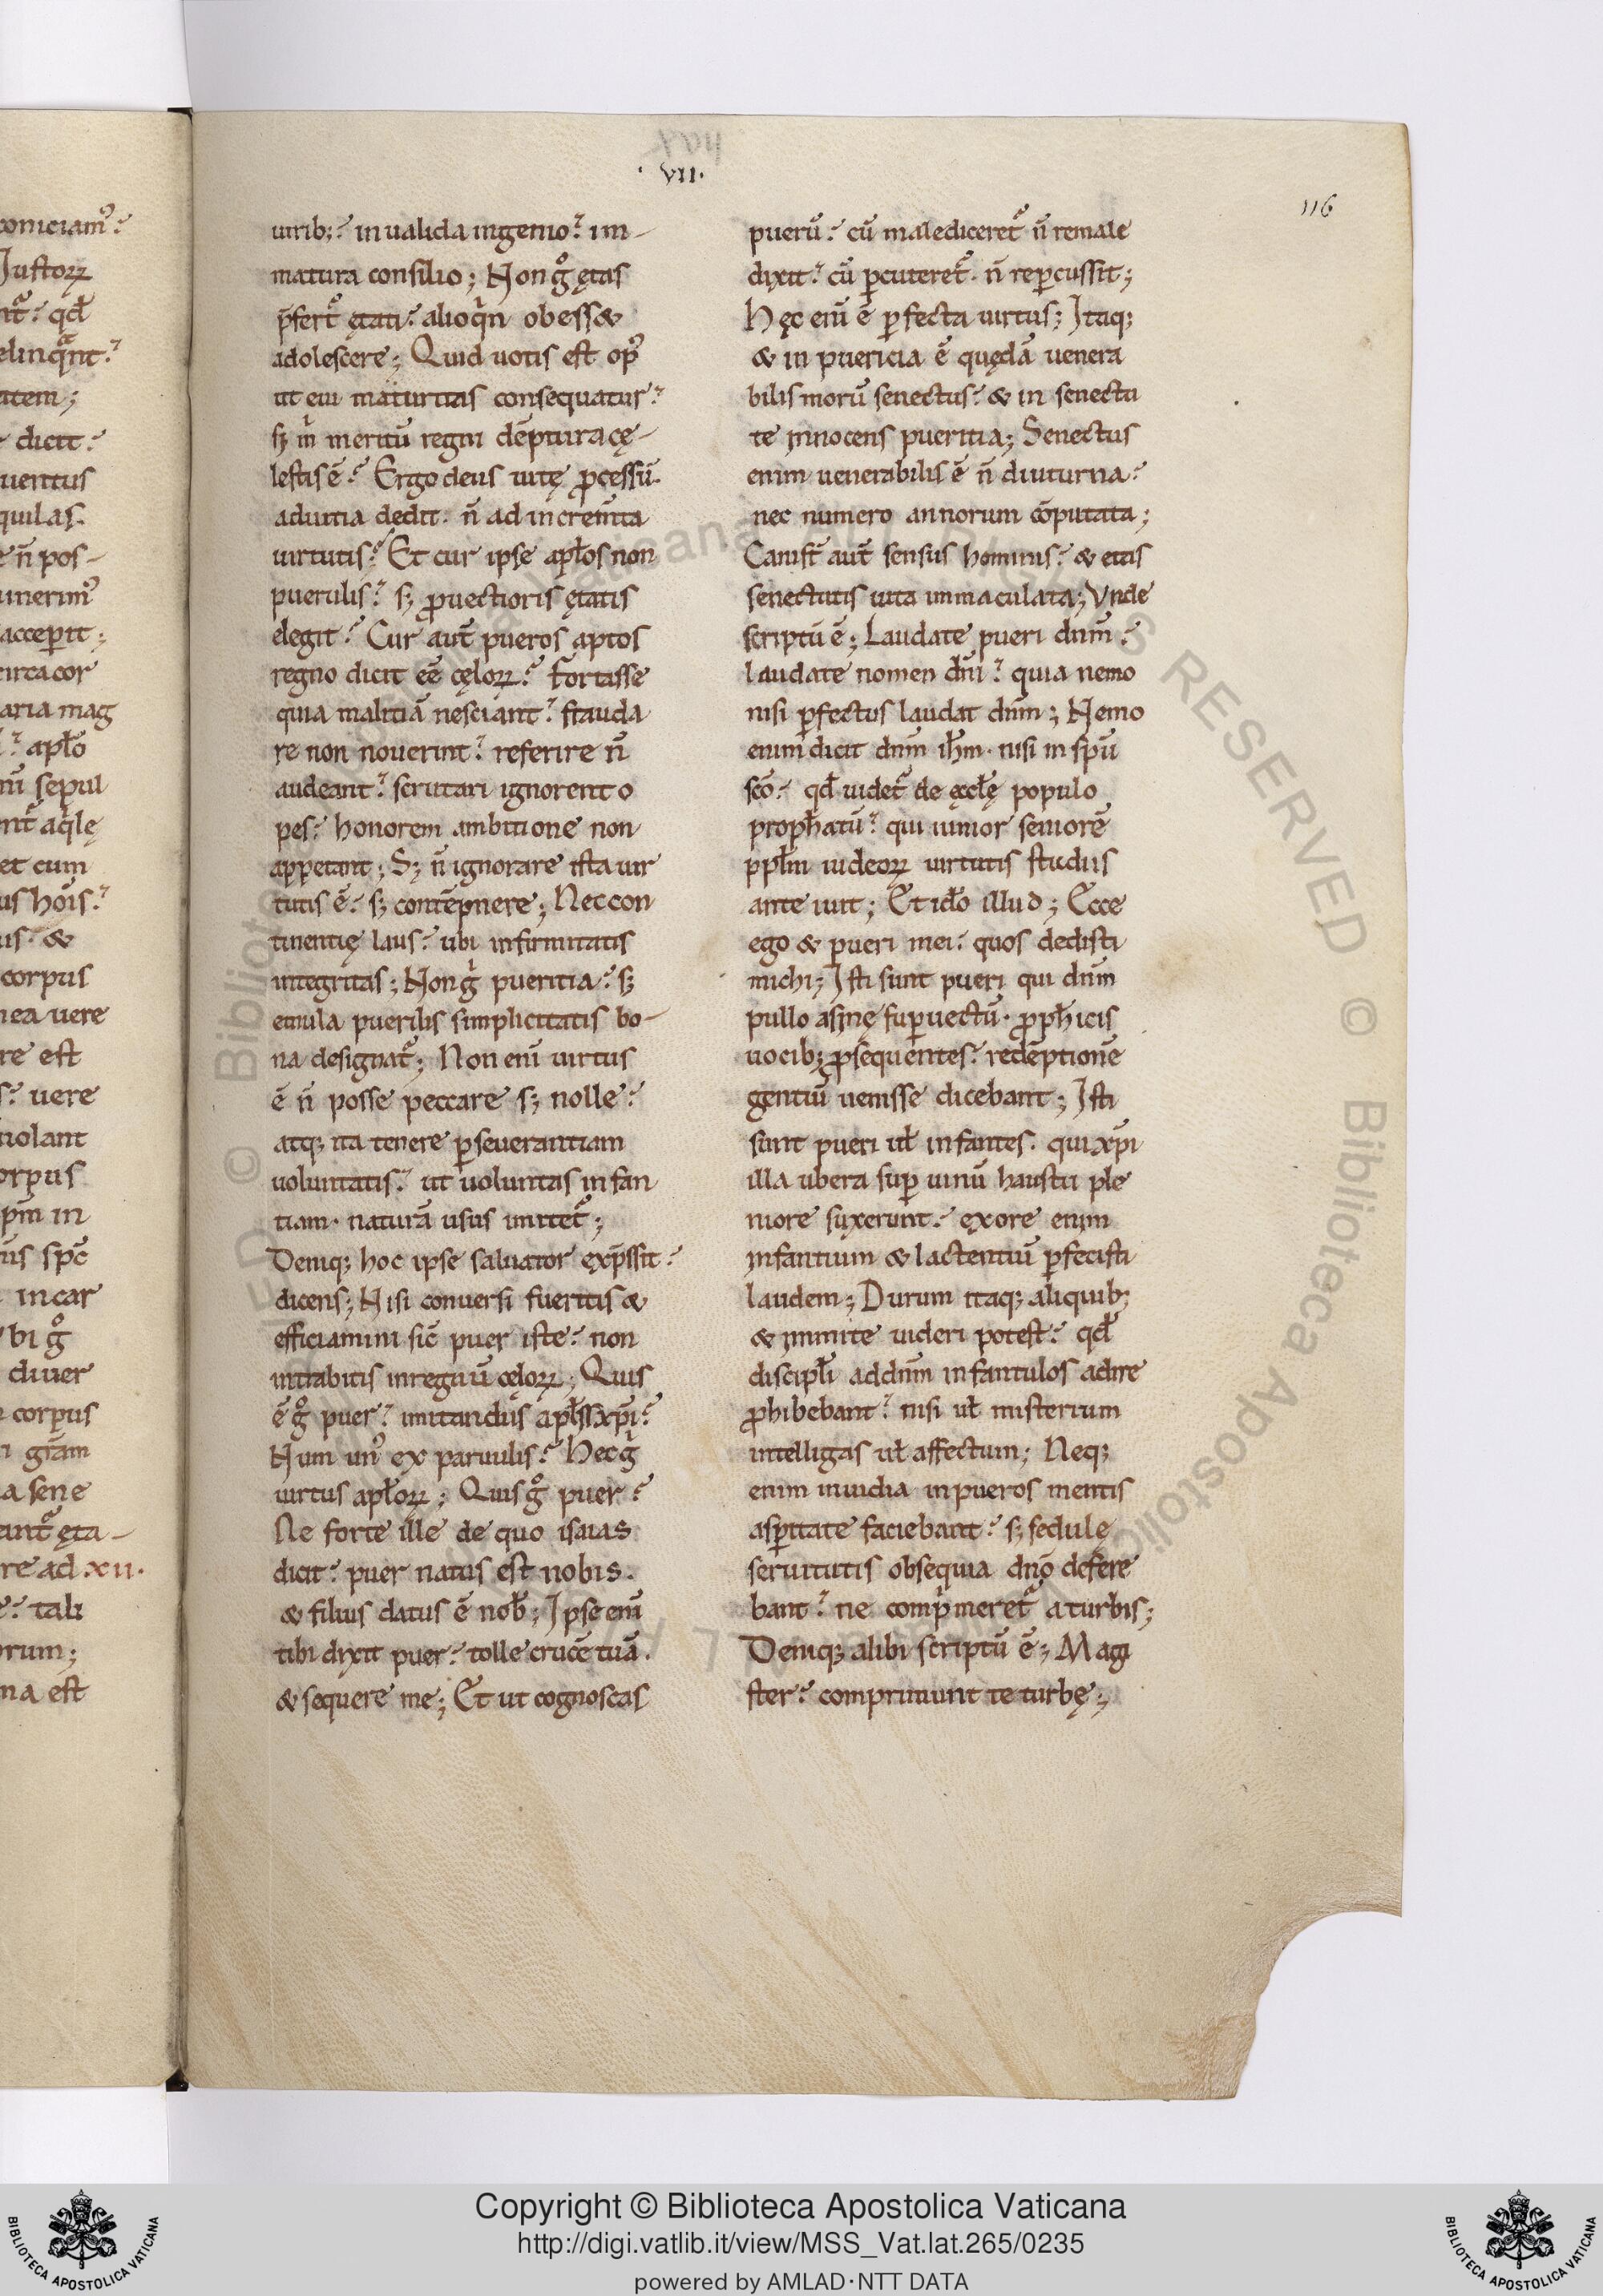 coniciam᷒?
Iustoꝝ
nt᷑? qd̄
elinq̄nt᷑.
atem;
dicit?
uentus
quilas.
ē n̄ pos-
unerim᷒
acceperit;
circa cor
aria mag
apl̄o
nū sepul
nt᷑ aq̇lę
et cum
us hoīs.
us. &
corpus
nea uere
re est
s? uere
uolant
orpus
pm̄ in
us spc̄
incar
bi gͦ
diuer
corpus
gr̄am
a sene
ant᷑ ęta-
re ad .xii.
? tali
orum;
na est
xvij
.VII.
116
uirib;? inualida ingenio? im-
matura consilio; Non gͦ ętas
p̄fert᷑ ętati? alioq̇n obess&
adolescere; Quid uotis est op᷒
ut eui maturitas consequatur?
sꝫ m̄ meritū regni dēptura cę-
lestis ē? Ergo deus uitę ꝓcessū.
ad uitia dedit. n̄ ad increm̄ta
uirtutis? Et cur ipse apl̄os non
puerulis? sꝫ ꝓuectioris ętatis
elegit? Cur aut̄ pueros aptos
regno dicit eē cęloꝝ? Fortasse
quia malitiā nesciant? frauda
re non nouerint? referire n̄
audeant? scrutari ignorent o
pes? honorem ambitione non
appetant; Sꝫ n̄ ignorare ista uir
tutis ē? sꝫ contēpnere; Nec con
tinentię laus? ubi infirmitatis
integritas; Non gͥ pueritia? sꝫ
emula puerilis simplicitatis bo-
na designat᷑; Non enī uirtus
ē n̄ posse peccare sꝫ nolle?
atqꝫ ita tenere ꝑseuerantiam
uoluntatis? ut uoluntas infan
tiam. naturā usus imitet᷑;
Deniqꝫ hoc ipse saluator exp̄ssit?
dicens; Nisi conuersi fueritis &
efficiamini sic̄ puer iste? non
intrabitis in regnū cęloꝝ; Quis
ē gͦ puer? imitandus apl̄s xp̄i?
Num un᷒ ex paruulis? Hec gͥ
uirtus apl̄oꝝ; Quis gͦ puer?
Ne forte ille de quo isaias
dicit? puer natus est nobis.
& filius datus ē nob̄; Ipse enī
tibi dixit puer? tolle crucē tuā.
& sequere me; Et ut cognoscas
puerū? cū malediceret᷑ n̄ remale
dixit? cū ꝑcuteret᷑. n̄ reꝑcussit;
Hęc enī ē ꝑfecta uirtus; Itaqꝫ
& in puericia ē quędā uenera
bilis morū senectus? & in senectu
te innocens pueritia; Senectus
enim uenerabilis ē n̄ diuturna?
nec numero annorum cōputata;
Cani st̄ aut̄ sensus hominis? & etas
senectutis uita immaculata; Vnde
scriptū ē; Laudate pueri dnm̄?
laudate nomen dn̄i? quia nemo
nisi ꝑfectus laudat dnm̄; Nemo
enim dicit dnm̄ ihm̄. nisi in spū
scō? qd̄ uidet᷑ de eccl̄ę populo
proph̄atū? qui iunior seniorē
ppl̄m iudeoꝝ uirtutis studiis
ante iuit; Et idō illud; Ecce
ego & pueri mei? quos dedisti
michi; Isti sunt pueri qui dnm̄
pullo asinę suꝑuectū. ꝓph̄icis
uocibꝫ ꝓsequentes? redēptionē
gentiū uenisse dicebant; Isti
sunt pueri ul̄ infantes. qui xp̄i
illa ubera suꝑ uinū haustu ple
niore suxerunt? ex ore enim
infantium & lactentiū ꝑfecisti
laudem; Durum itaqꝫ aliquibꝫ
& inmite uideri potest? qd̄
discipl̄i ad dnm̄ infantulos adire
ꝓhibebant? nisi ul̄ misterium
intelligas ul̄ affectum; Neqꝫ
enim inuidia in pueros mentis
asꝑitate faciebant? sꝫ sedulę
seruitutis obsequia dn̄o defere
bant? ne comp̄meret᷑ a turbis;
Deniqꝫ alibi scriptū ē; Magi
ster? comprimunt te turbę;
Copyright © Biblioteca Apostolica Vaticana
http://digi.vatlib.it/view/MSS_Vat.lat.265/0235
powered by AMLAD·NTT DATA
BIBLIOTECA APOSTOLICA VATICANA
BIBLIOTECA APOSTOLICA VATICANA